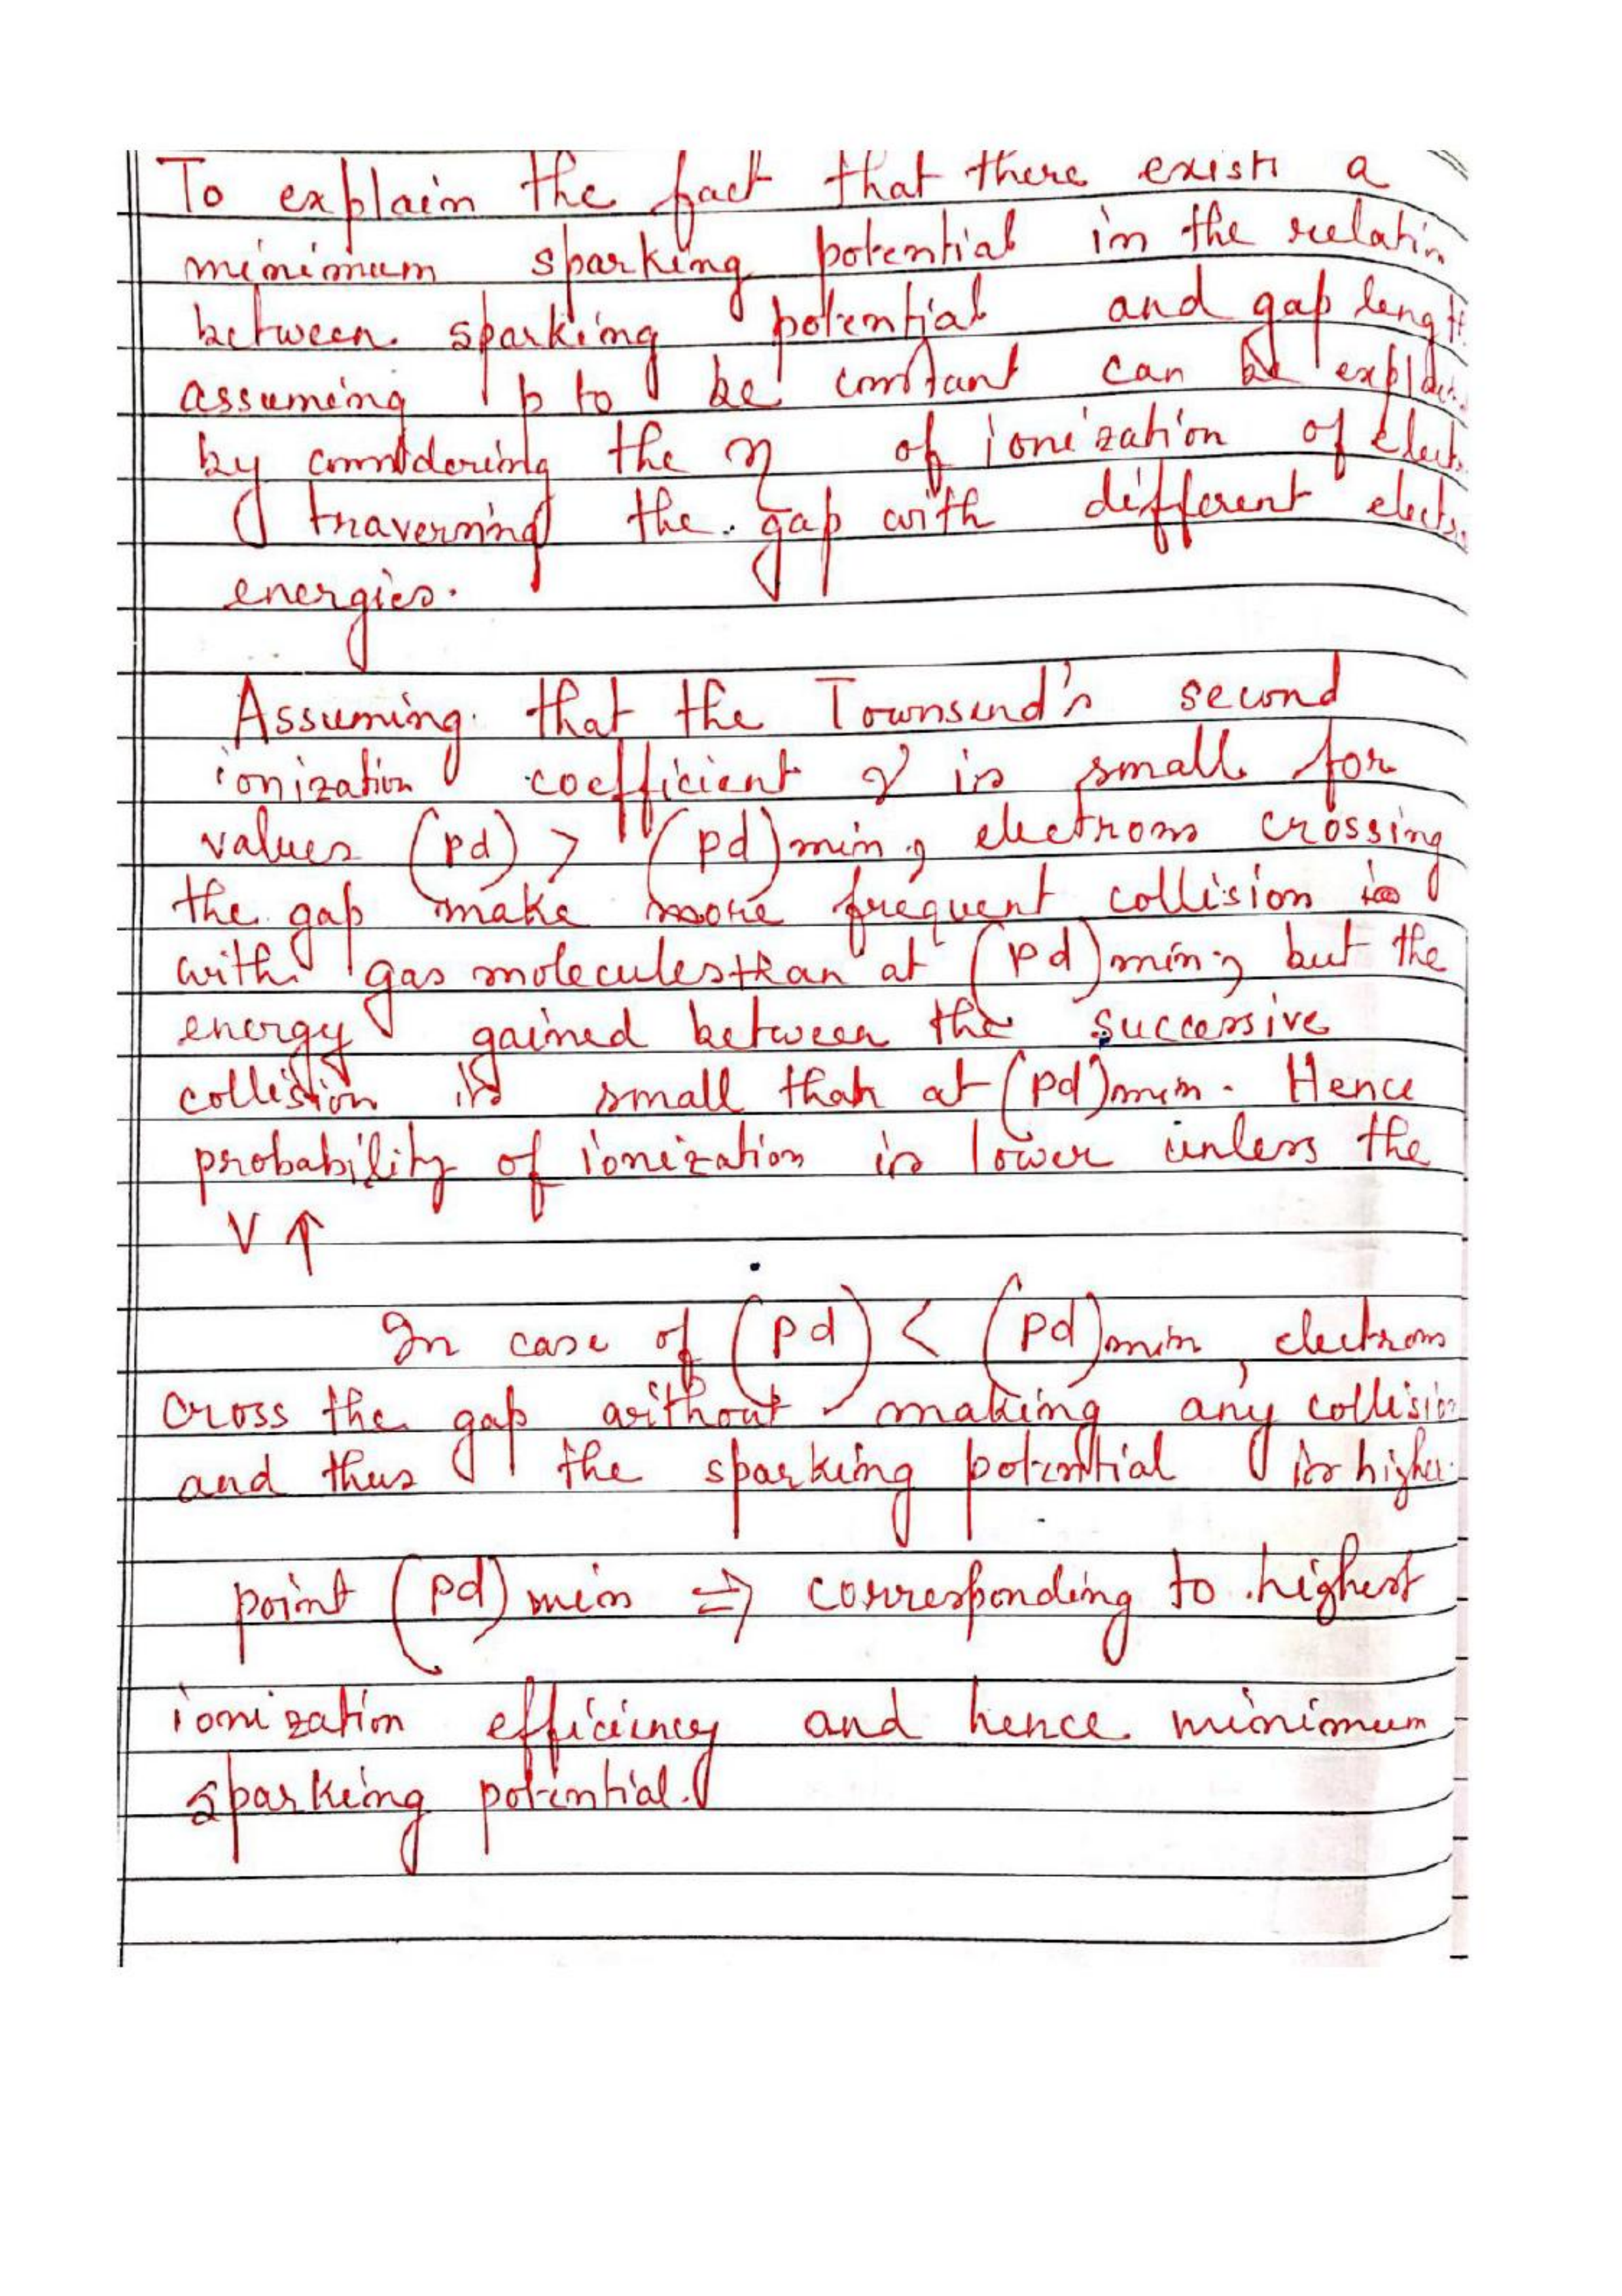 To explain the fact that there exist a
minimum sparking potential in the relatin
between sparking potential and gap length
assuming p to be constant can be
by considering the η of ionization of
traversing the gap with different
energies.
Assuming that the Townsend's second
ionization coefficient γ is small for
values (pd) > (pd)min, electrons crossing
the gap make more frequent collision
with gas molecules than at (pd)min; but the
energy gained between the successive
collision is small than at (pd)min. Hence
probability of ionization is lower unless the
V ↑
In case of (pd) < (pd)min, electrons
cross the gap without making any collision
and thus the sparking potential is higher.
point (pd)min ⇒ corresponding to highest
ionization efficiency and hence minimum
sparking potential.